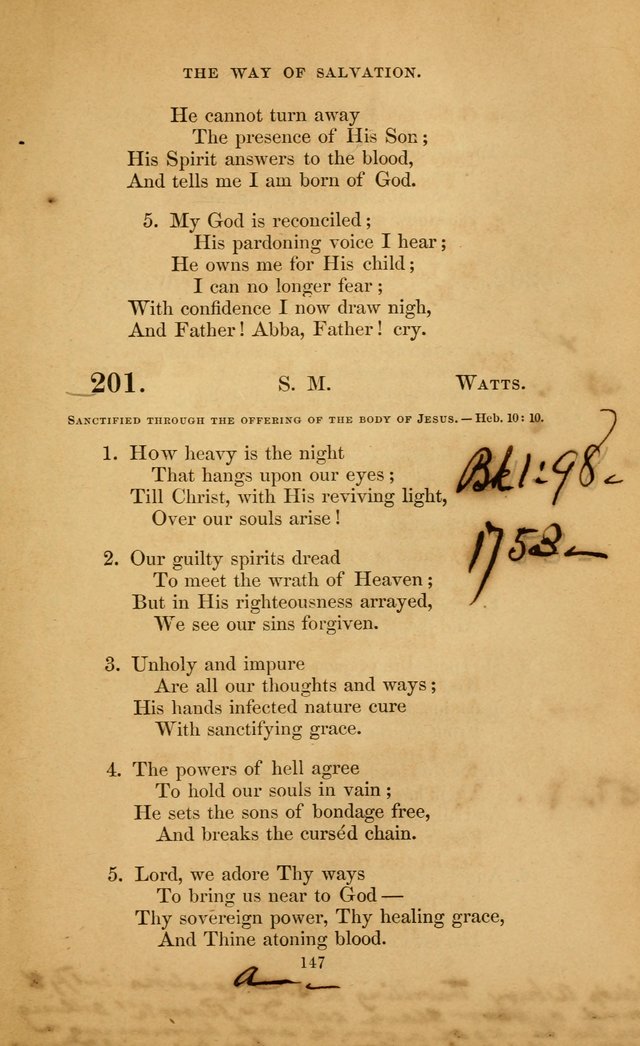 THE WAY OF SALVATION.
He cannot turn away
The presence of His Son;
His Spirit answers to the blood,
And tells me I am born of God.
5. My God is reconciled;
His pardoning voice I hear;
He owns me for His child;
I can no longer fear;
With confidence I now draw nigh,
And Father! Abba, Father! cry.
201. S. M. WATTS.
SANCTIFIED THROUGH THE OFFERING OF THE BODY OF JESUS.—Heb. 10: 10.
1. How heavy is the night
That hangs upon our eyes;
Till Christ, with His reviving light,
Over our souls arise!
Bk1:98
1753
2. Our guilty spirits dread
To meet the wrath of Heaven;
But in His righteousness arrayed,
We see our sins forgiven.
3. Unholy and impure
Are all our thoughts and ways;
His hands infected nature cure
With sanctifying grace.
4. The powers of hell agree
To hold our souls in vain;
He sets the sons of bondage free,
And breaks the curséd chain.
5. Lord, we adore Thy ways
To bring us near to God—
Thy sovereign power, Thy healing grace,
And Thine atoning blood.
147
a